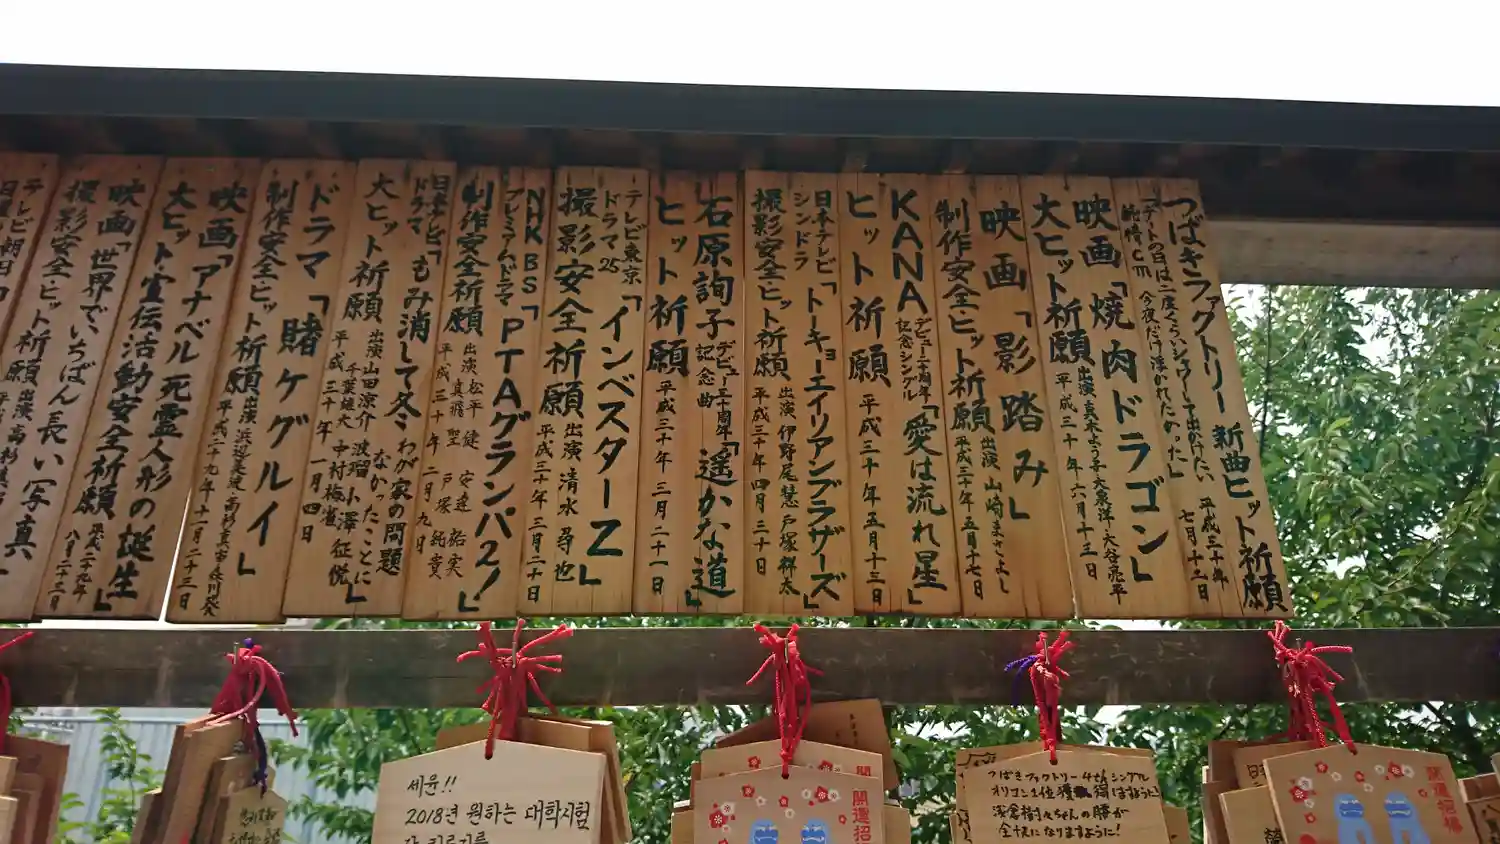 つばきファクトリー 新曲ヒット祈願
「デートの日は二度くらいシャワーして出かけたい」
純情cm 今夜だけ浮かれたかった」
平成三十年
七月十二日
映画「焼肉ドラゴン」
大ヒット祈願
出演 真木よう子 大泉洋・大谷亮平
平成三十年六月十三日
映画「影踏み」
制作安全・ヒット祈願
出演 山崎まさよし
平成三十年五月十七日
KANA デビュー二十周年
記念シングル
「愛は流れ星」
ヒット祈願
平成三十年五月十三日
日本テレビ
シンドラ
「トーキョーエイリアンブラザーズ」
撮影安全・ヒット祈願
出演 伊野尾慧 戸塚祥太
平成三十年四月三十日
石原詢子 デビュー三十周年
記念曲
「遥かな道」
ヒット祈願
平成三十年三月二十一日
テレビ東京
ドラマ25
「インベスターZ」
撮影安全祈願
出演 清水尋也
平成三十年三月二十日
NHK BS
プレミアムドラマ
「PTAグランパ2!」
制作安全祈願
出演 松平健 安達祐実
真飛聖 戸塚純貴
平成三十年二月九日
日本テレビ
ドラマ
「もみ消して冬 わが家の問題
なかったことに」
大ヒット祈願
出演 山田涼介 波瑠 小澤征悦
千葉雄大 中村梅雀
平成三十年一月四日
ドラマ「賭ケグルイ」
制作安全・ヒット祈願
出演 浜辺美波・高杉真宙・森川葵
平成二十九年十一月二十三日
映画「アナベル 死霊人形の誕生」
大ヒット・宣伝活動安全祈願
平成二十九年
八月二十三日
映画「世界でいちばん長い写真」
撮影安全・ヒット祈願
出演 高杉真宙
テレビ朝日
세윤!!
2018년 원하는 대학시험
開運招福
つばきファクトリー4thシングル
オリコン1位獲得しますように!
浅倉樹々ちゃんの腰が
全快になりますように!
開運招福